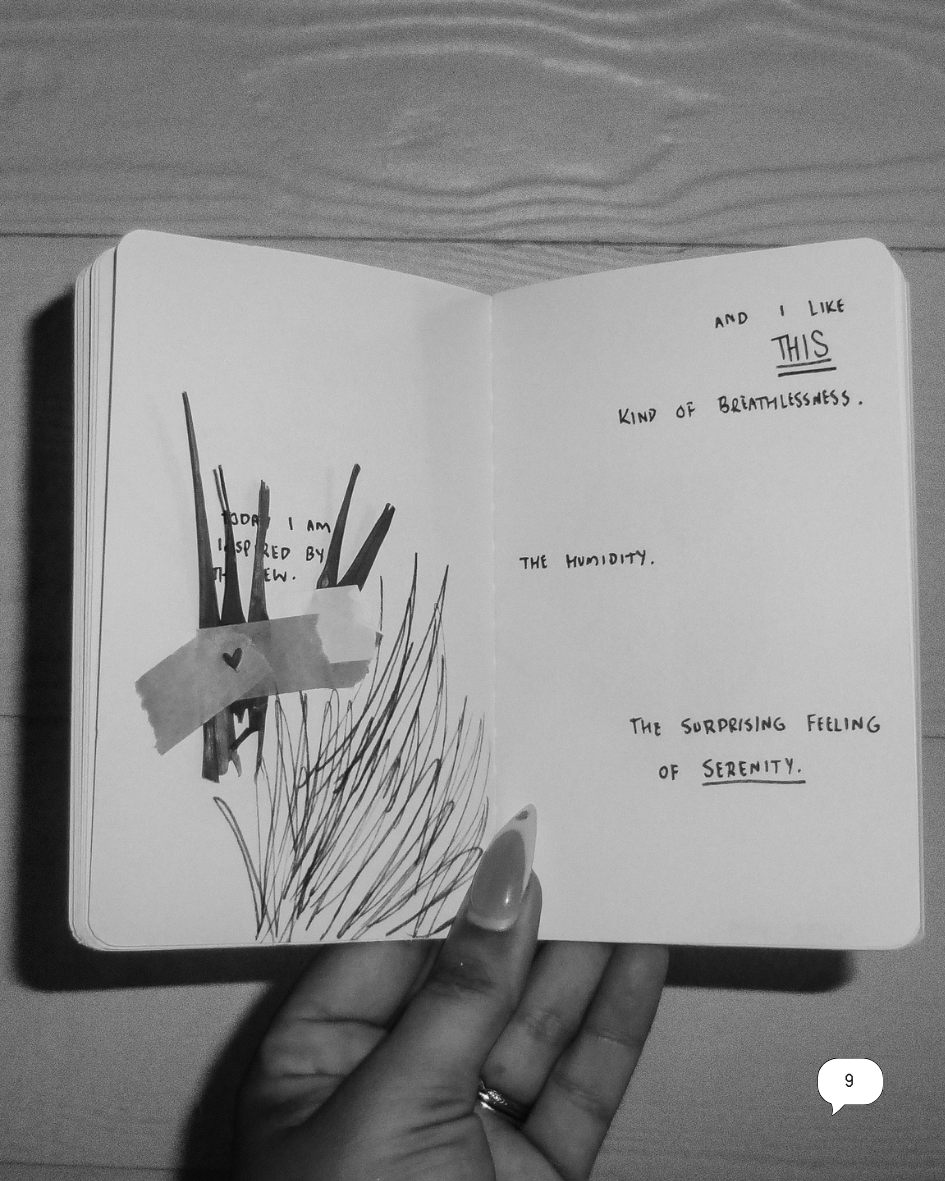 TODAY I AM
INSPIRED BY
AND I LIKE
THIS
KIND OF BREATHLESSNESS.
THE HUMIDITY.
THE SURPRISING FEELING
OF SERENITY.
9